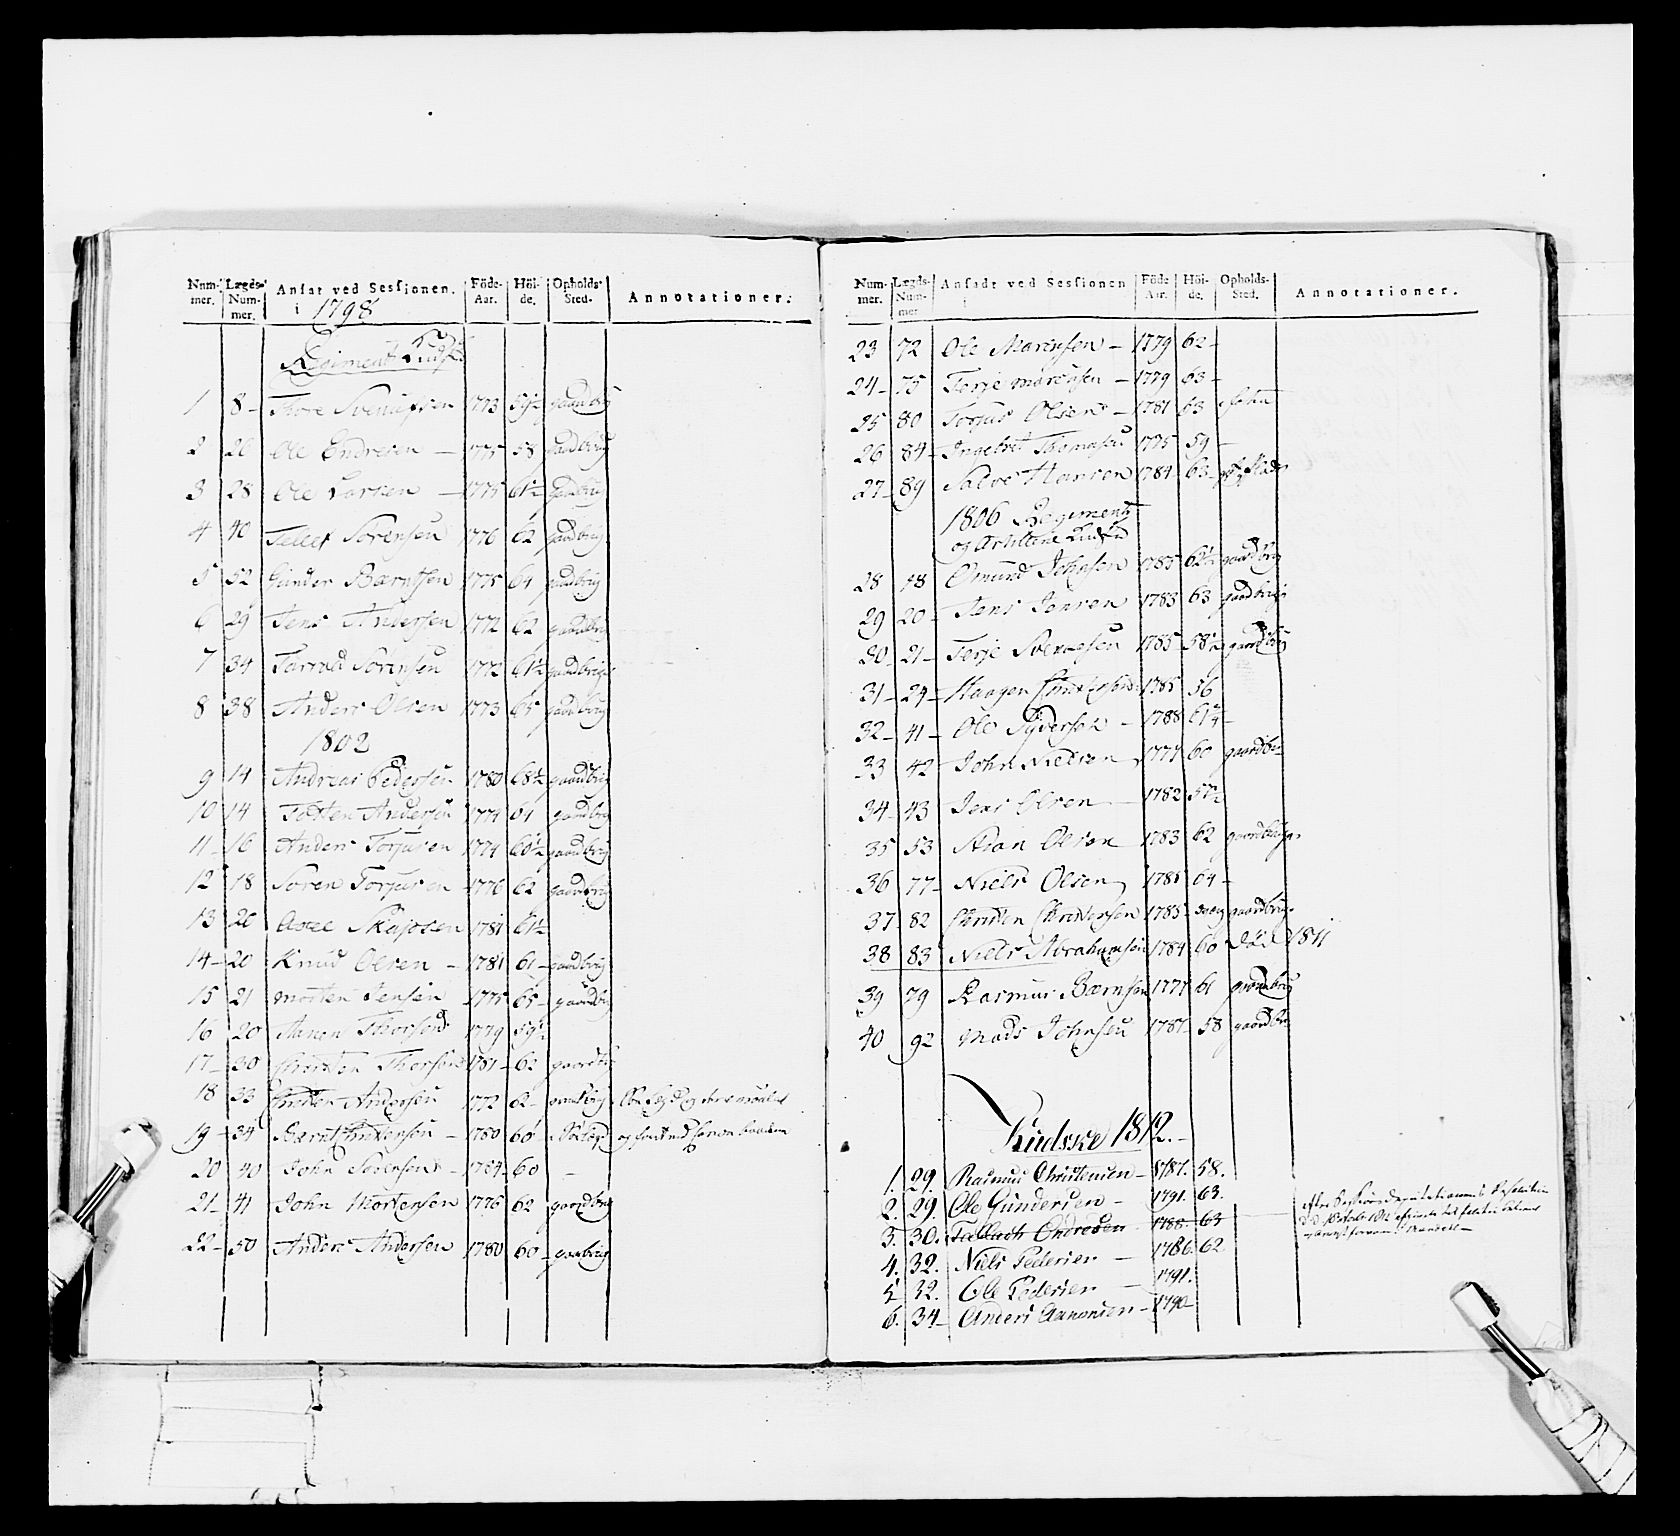 Num- Lægds- Ansat ved Sessionen. Föde- Höi- Opholds- Annotationer.
mer. Num- i 1798 Aar. de. Sted.
mer.
Regiment Kudske
1 8 - Thore Svenüfsen 1773 59½ gaardbrug
2 20 Ole Endresen - 1775 58 gaardbrug
3 28 Ole Larsen - 1775 61½ gaardbrug
4 40 Tellef Sörensen 1776 62 gaardbrug
5 52 Gunder Bærntsen 1775 61 gaardbrug
6 29 Jens Andersen 1772 62 gaardbrug
7 34 Tarald Sörensen 1772 61½ gaardbrug
8 38 Anders Olsen 1773 65 gaardbrug
1802
9 14 Andreas Pedersen 1780 68½ gaardbrug
10 14 Andersen 1774 61 gaardbrug
11 16 Anders Torjusen 1774 60½ gaardbrug
12 18 Sören Torjusen 1776 62 gaardbrug
13 20 Skajsen 1781 61½
14 - 20 Knud Olsen - 1781 61 - gaardbrug
15 21 Morten Jensen 1775 65 - gaardbrug
16 20 Aanen Thorsen 1779 59½
17 - 30 Thorsen 1781 - 62 gaardbr
18 33 Christen Andersen 1772 62 - gaardbrug
19 - 34 Bærnt Christensen - 1780 60
20 40 John Sörensen - 1784 - 60 -
21 - 41 John Mortensen 1776 62 gaardbrug
22 - 50 Anders Andersen 1780 60 - gaarbrug
Num- Lægds- Ansadt ved Sessionen Föde Höi- Opholds- Annotationer.
mer. Num- Aar. de. Sted.
mer
23 72 Ole Marensen - 1779 62 -
24 - 75 Terje Marensen - 1779 63 -
25 80 Torjus Olsen - 1781 63
26 84 - Ingebret Thomasen 1775 59 -
27 - 89 Salve Hansen 1784 63 -
1806 Regiments
og Artillerie Kudske
28 18 Omund Johnsen 1785 62½ gaardbrug
29 20 - Jens Jensen 1783 63 gaardbrug
30 - 21 - Terje Svenüsen 1785 - 58½ gaardbrug
31 - 24 - Haagen Christensen 1785 56
32 - 41 - Ole Sÿversen - 1788 61¾ -
33 42 John Nielsen 1777 60 gaardbr
34 - 43 Jens Olsen - 1782 57½
35 53 Olsen 1783 62 gaardbrug
36 77 - Niels Olsen 1781 64 -
37 - 82 Christen Christensen 1785 - gaardbrug
38 83 Niels Abrahamsen 1784 60 död 1811
39 79 Rasmus Bærnsen 1777 61 gaardbrug
40 92 Mads Johnsen 1787 - 58 gaardbr
Kudske 1812. -
1. 29. Rasmus Christensen - 1787. 58.
2. 29. Ole Gundersen - 1791. 63.
3. 30. Tellach Endresen 1788. 63
4. 32. Niels Pedersen - 1786. 62
5 32. Ole Pedersen - 1791.
6. 34 - Anders Aanonsen - 1790 -